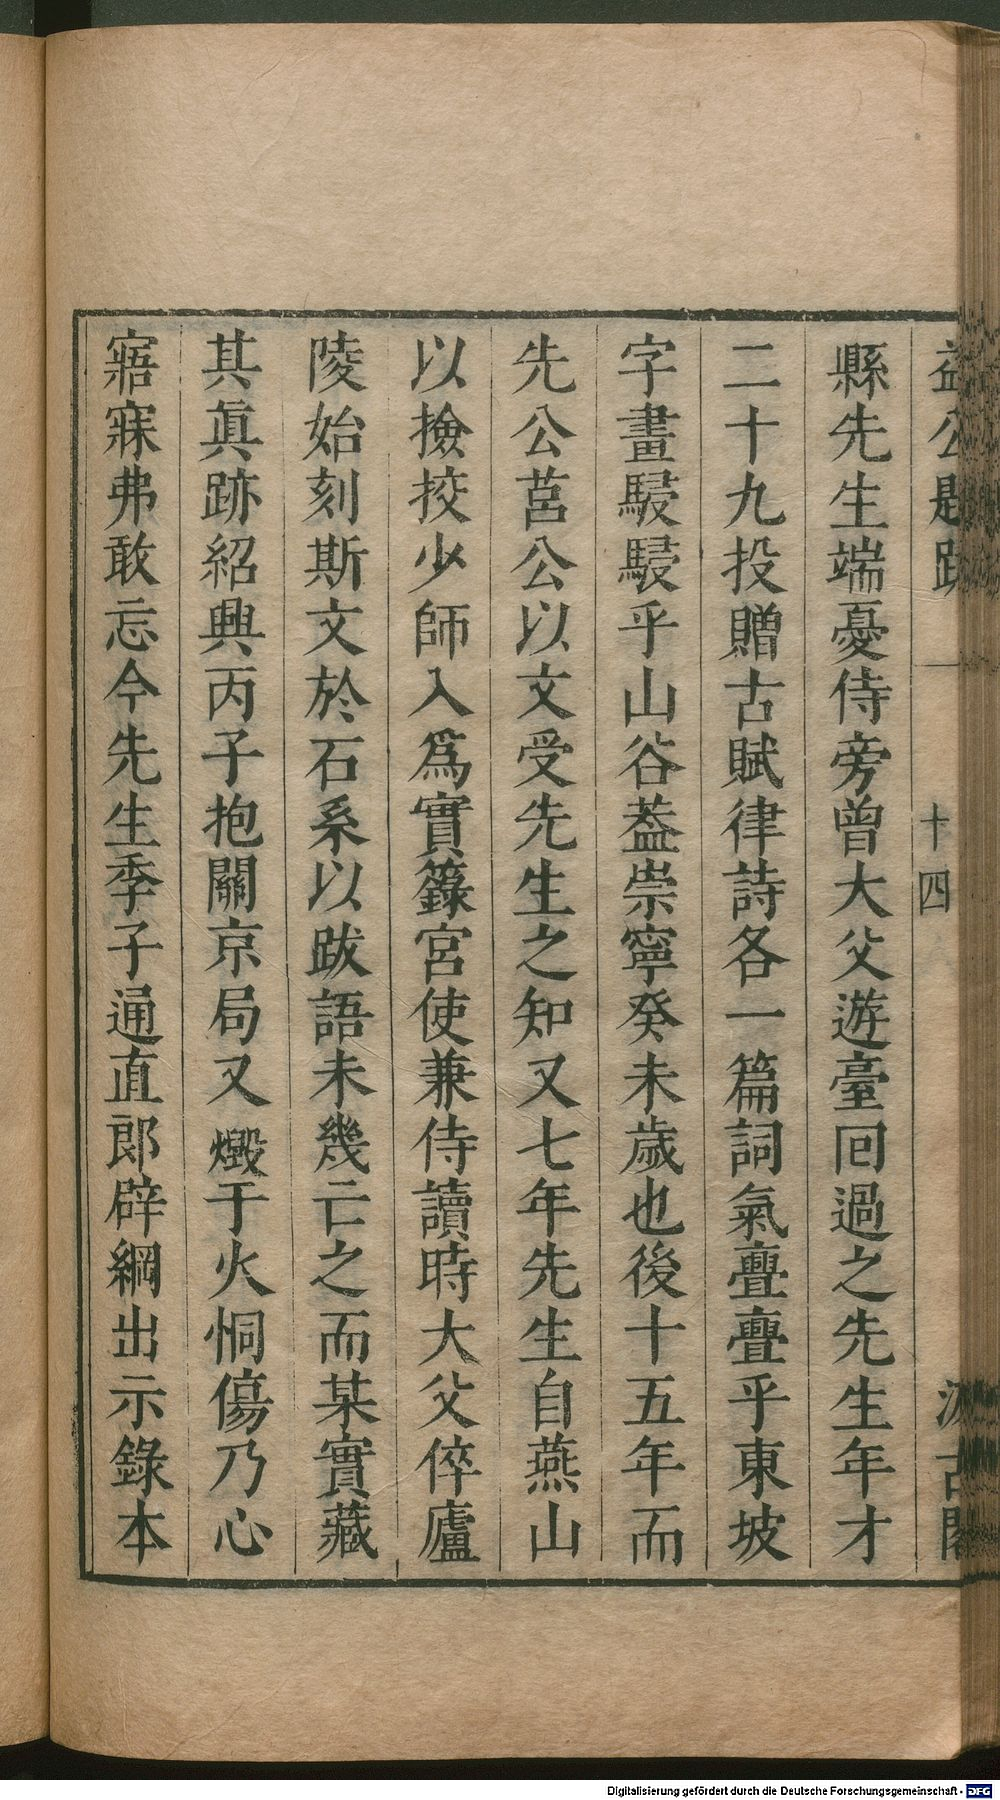 益公題跋
一
十四
汲古閣
縣先生端憂侍旁曾大父遊臺回過之先生年才
二十九投贈古賦律詩各一篇詞氣亹亹乎東坡
字畫駸駸乎山谷葢崇寧癸未歲也後十五年而
先公莒公以文受先生之知又七年先生自燕山
以撿挍少師入爲實籙宮使兼侍讀時大父倅廬
陵始刻斯文於石系以跋語未幾亡之而某實藏
其眞跡紹興丙子抱關京局又燬于火恫傷乃心
寤寐弗敢忘今先生季子通直郎辟綱出示錄本
Digitalisierung gefördert durch die Deutsche Forschungsgemeinschaft - DFG